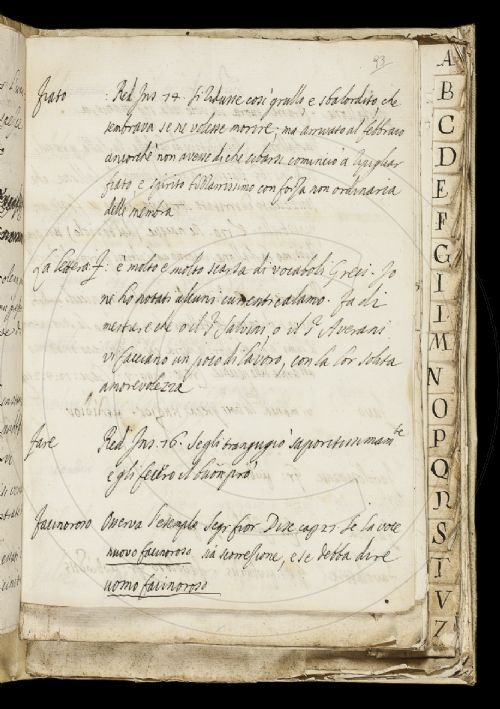 93
fiato : Red. Ins. 14. si ridusse così grullo e sbalordito che
sembrava se ne volesse morire; ma arrivato al febbraio
ancorchè non avesse di che cibarsi cominciò a ripigliar
fiato e spirito bizzarrissimo con forza non ordinaria
delle membra
La lettera F: è molto e molto scarsa di vocaboli Greci. Io
ne ho notati alcuni currenti calamo. Fa di
mestiere che o il S. Salvini o il S. Averani
vi facciano un poco di lavoro, con la lor solita
amorevolezza
fare Red. Ins. 16. se gli trangugiò saporitissimamte
e gli fecero il buon prò
facinoroso Osserva l'esempio Segr. fior. Disc. cap. 21. se la voce
nuovo facinoroso sia scorrezione, e se debba dire
uomo facinoroso
A
B
C
D
E
F
G
I
L
M
N
O
P
Q
R
S
T
V
Z